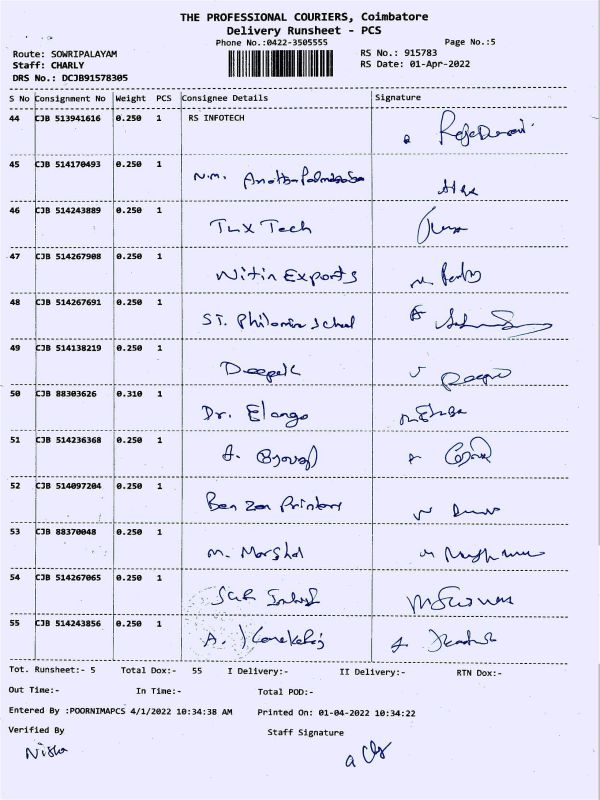 THE PROFESSIONAL COURIERS, Coimbatore
Delivery Runsheet - PCS
Phone No.:0422-3505555 Page No.:5
Route: SOWRIPALAYAM RS No.: 915783
Staff: CHARLY RS Date: 01-Apr-2022
DRS No.: DCJB91578305
S No Consignment No Weight PCS Consignee Details Signature
44 CJB 513941616 0.250 1 RS INFOTECH
45 CJB 514170493 0.250 1
N.M.
46 CJB 514243889 0.250 1
Tux Tech
47 CJB 514267908 0.250 1
Nitin Exports
48 CJB 514267691 0.250 1
ST. Philomine School
49 CJB 514138219 0.250 1
Deepak
50 CJB 88303626 0.310 1
Dr. Elango
51 CJB 514236368 0.250 1
52 CJB 514097204 0.250 1
Ben Zon Printers
53 CJB 88370048 0.250 1
M. Marshal
54 CJB 514267065 0.250 1
55 CJB 514243856 0.250 1
A.
Tot. Runsheet:- 5 Total Dox:- 55 I Delivery:- II Delivery:- RTN Dox:-
Out Time:- In Time:- Total POD:-
Entered By :POORNIMAPCS 4/1/2022 10:34:38 AM Printed On: 01-04-2022 10:34:22
Verified By Staff Signature
Nisha